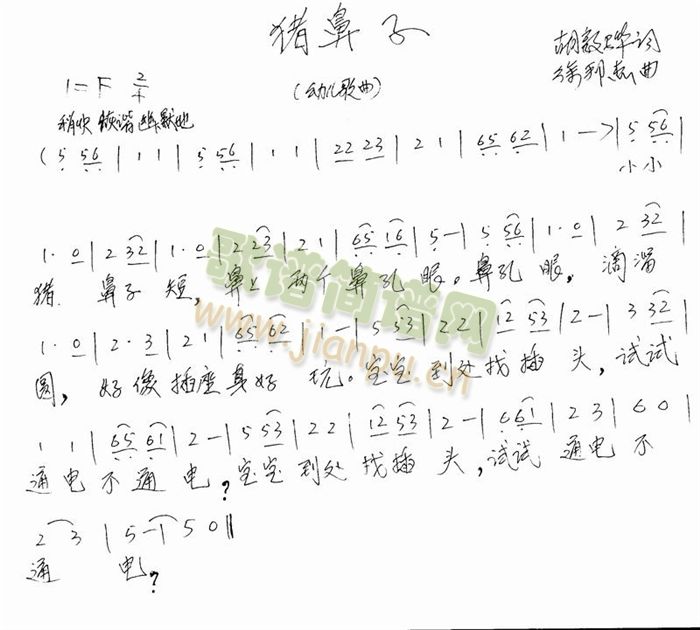 猪鼻子
胡敦骅词
(幼儿歌曲)
1=F 2/4
稍快 诙谐幽默地
(5 56 | 1 1 | 5 56 | 1 1 | 22 23 | 2 1 | 65 62 | 1 —> | 5 56 |
小小
1· 0 | 2 32 | 1· 0 | 2 23 | 2 1 | 65 16 | 5 - | 5 56 | 1· 0 | 2 32 |
猪 鼻子 短, 鼻上 两个 鼻孔 眼。鼻孔 眼, 滴溜
1· 0 | 2· 3 | 2 1 | 65 62 | 1 - | 5 53 | 22 | 12 53 | 2 - | 3 32 |
圆, 好像插座真好 玩。宝宝 到处找插 头, 试试
1 1 | 65 61 | 2 - | 5 53 | 22 | 12 53 | 2 - | 6 61 | 2 3 | 6 0 |
通电不通 电?宝宝到处 找插 头,试试 通电 不
2 3 | 5 - | 5 0 ||
通 电?
歌谱简谱网
www.jianpu.cn